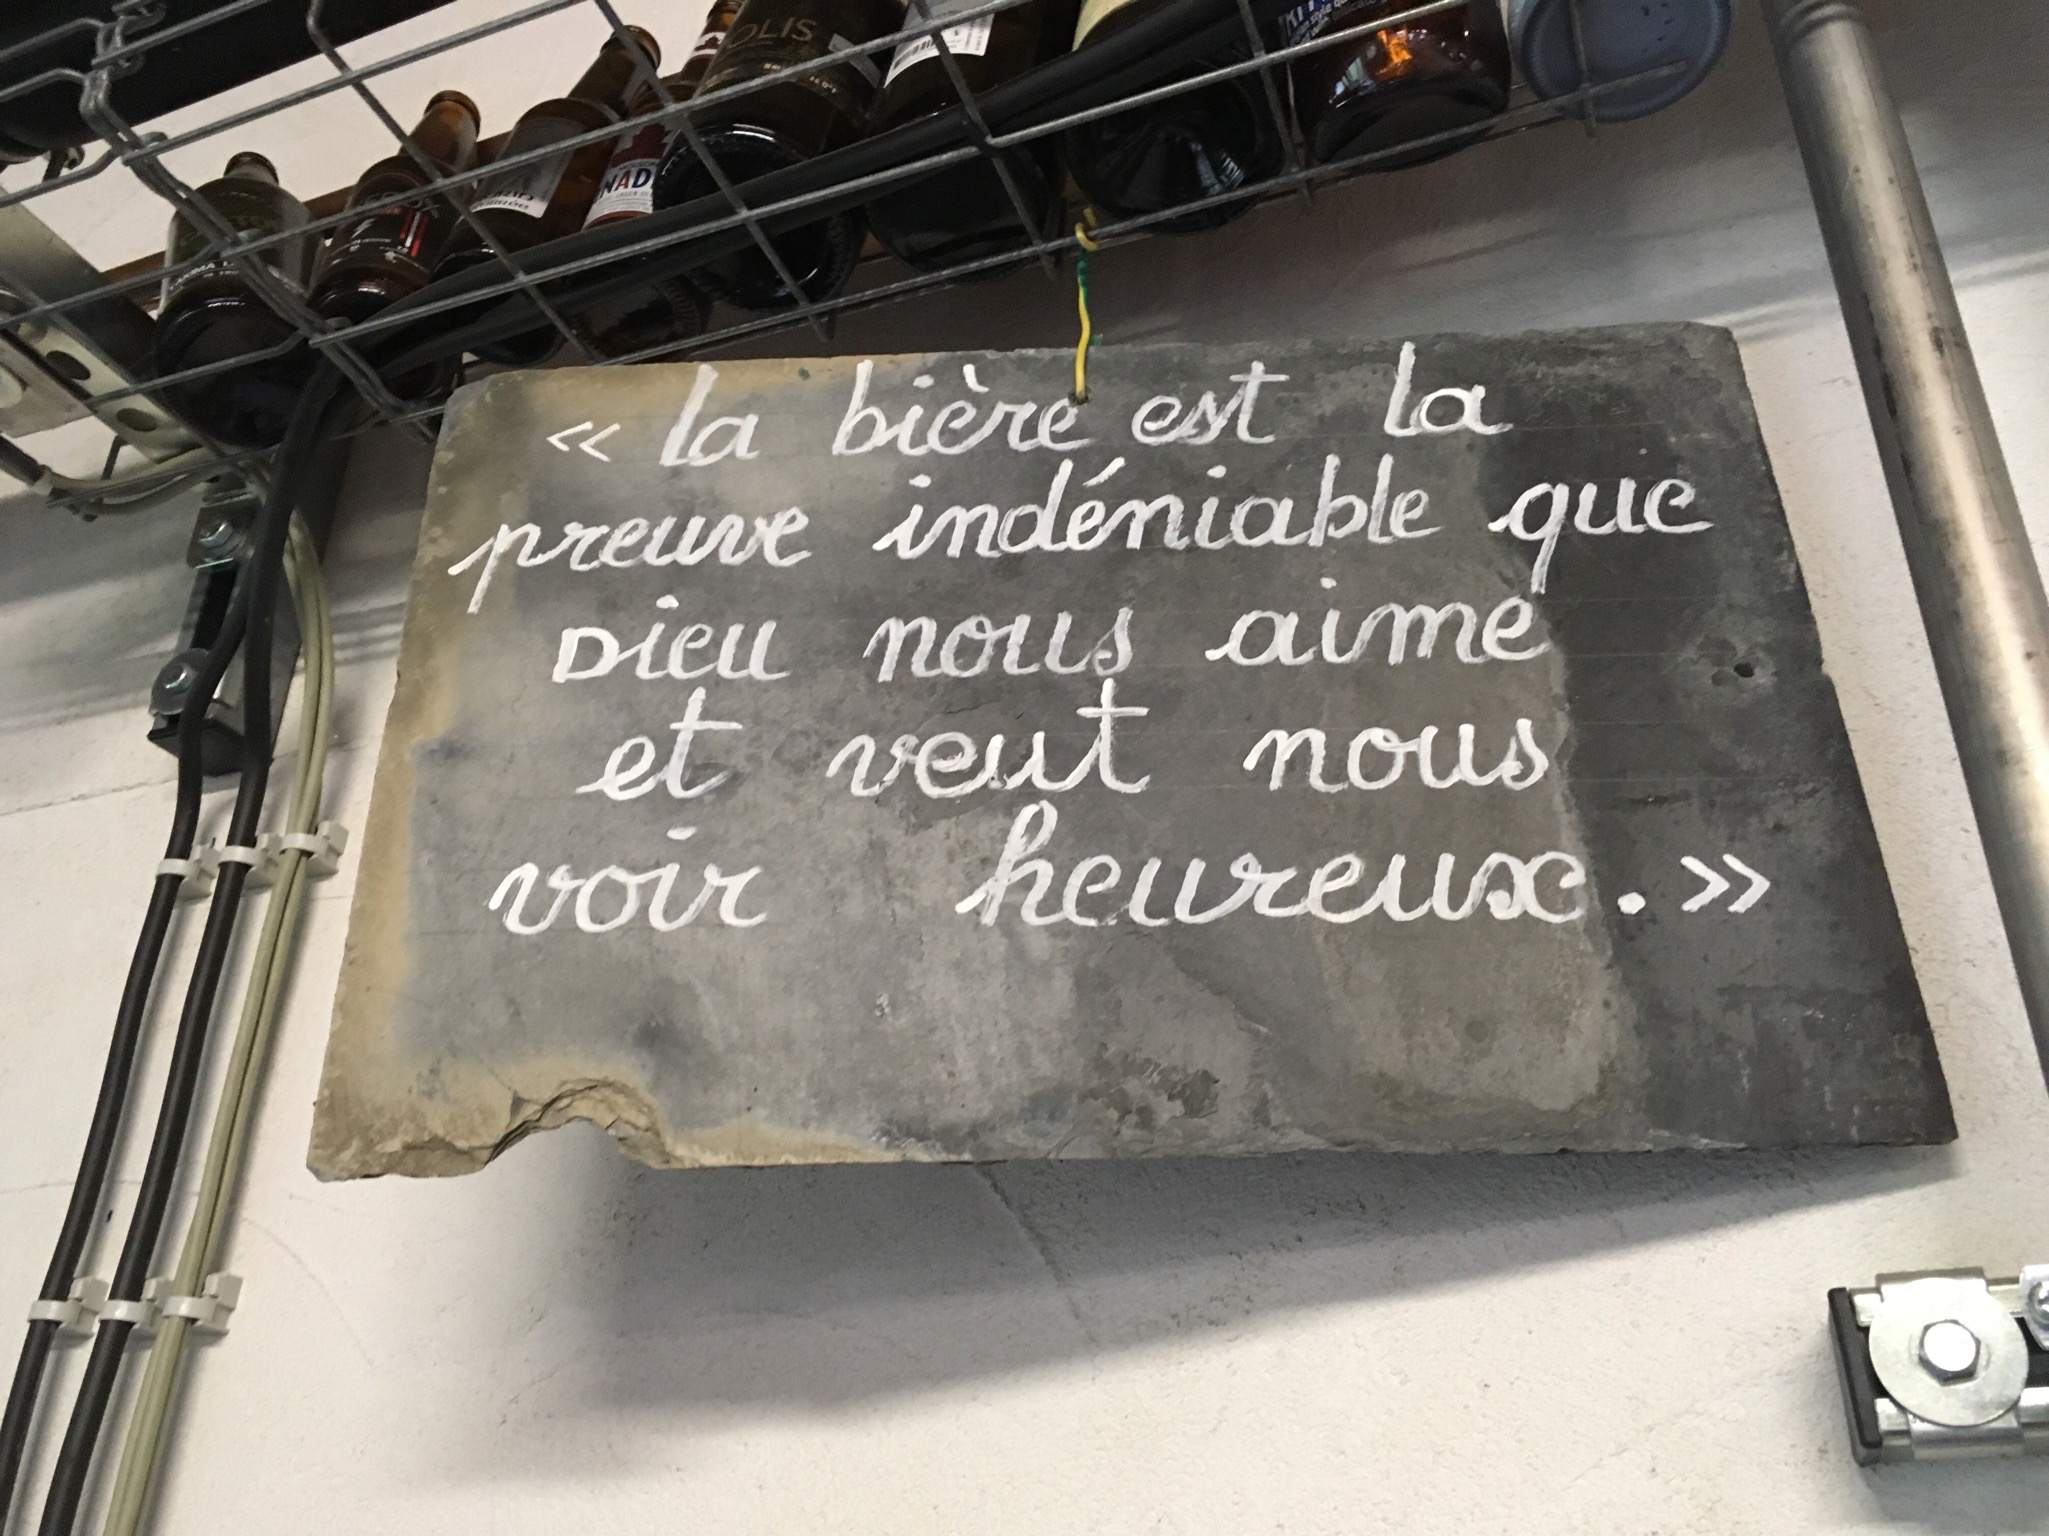 OLIS
NAD
« la bière est la
preuve indéniable que
Dieu nous aime
et veut nous
voir heureux. »